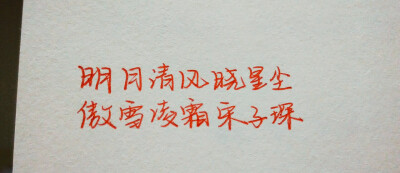 明月清风晓星尘
傲雪凌霜宋子琛